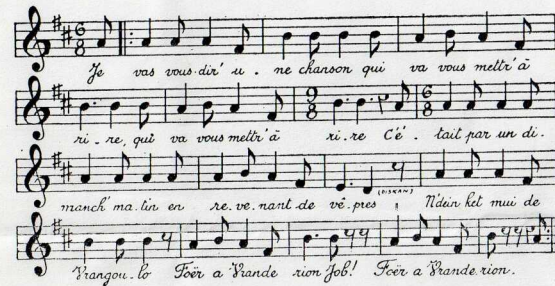 Je vas vous dir' u - ne chanson qui va vous mettr' à
ri - re, qui va vous mettr' à ri - re C'é - tait par un di -
manch' ma - tin en re - ve - nant de vê - pres (DISKAN) N'dein ket mui de
Vrangou - lo Foër a Vrande rion Job! Foër a Vrande rion.